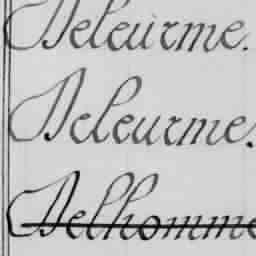 Deleurme.
Deleurme.
Delhomme